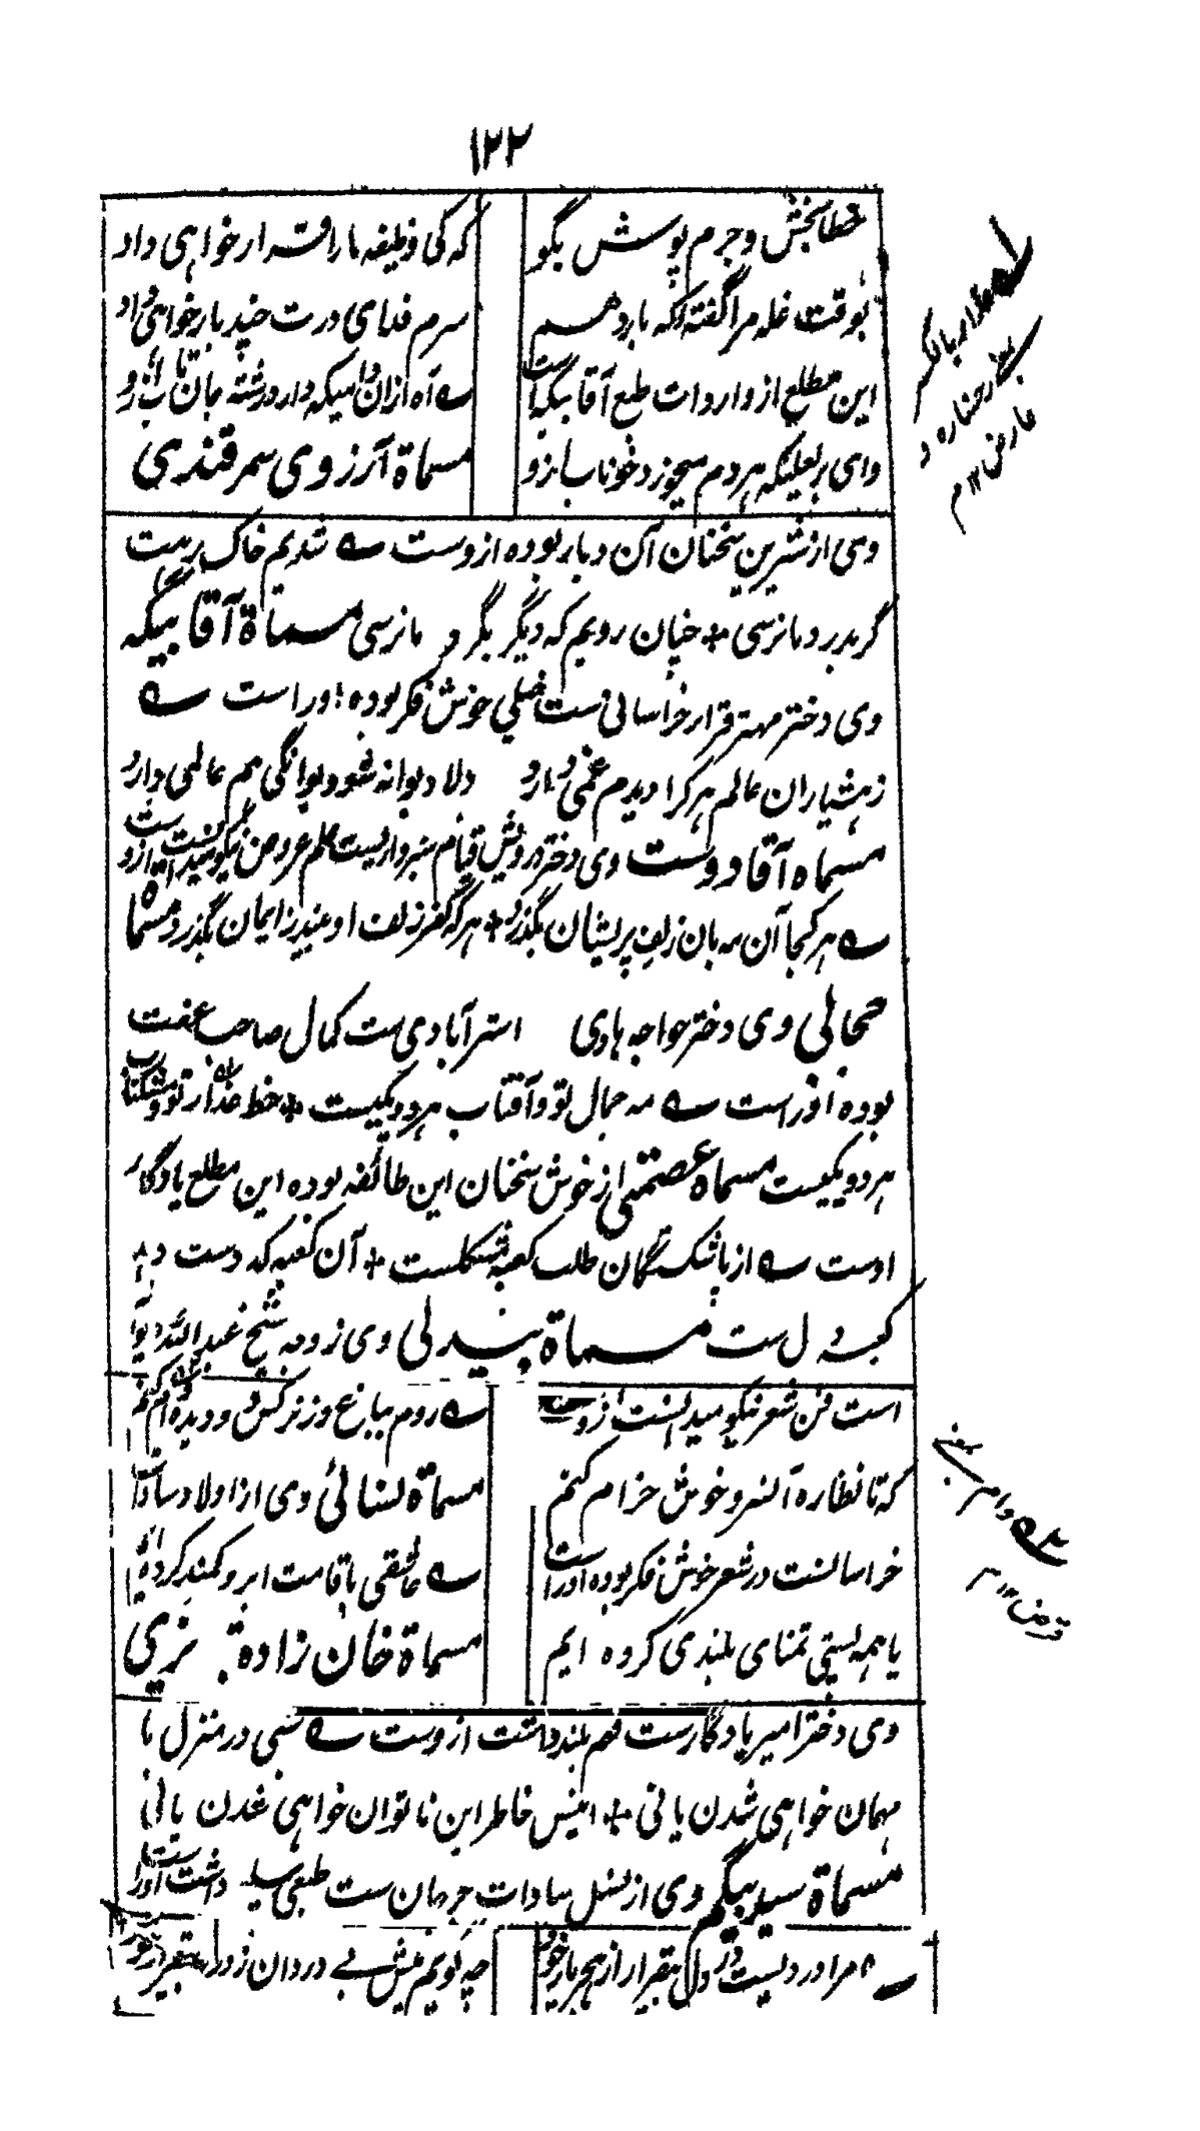 ۱۲۲
خطا بخش و جرم پوش بگو که کی وظیفه ما را قرار خواهی داد
بوقت غله مرا گفته که بار دهم سرم فدای درت چند بار خواهی داد
این مطلع از واردات طبع آقا بیگه است آه ازان دامیکه دارد رشته جان تاب ازو
وای بر لعلیکه هر دم میخورد خوناب ازو مسماة آرزوی سمرقندی
وی از شیرین سخنان آن دیار بوده ازوست شدیم خاک رهت
گر بدرد ما نرسی + چنان رویم که دیگر بگرد ما نرسی مسماة آقا بیگه
وی دختر مهتر قرار خراسانی ست خیلی خوش فکر بوده او راست
ز هشیاران عالم هر کرا دیدم غمی دارد دلا دیوانه شو دیوانگی هم عالمی دارد
مسماه آقا دوست وی دختر درویش قیام سبزواریست علم عروض نیکو میدانست ازوست
هر کجا آن مه بآن زلف پریشان بگذرد + هر که کفر زلف او بیند ز ایمان بگذرد مسماة
حجابی وی دختر خواجه هادی استرآبادی ست کمال صاحب عفت
بوده او راست مه جمال تو و آفتاب هر دو یکیست + خط عذار تو و مشکناب
هر دو یکیست مسماه عصمتی از خوش سخنان این طائفه بوده این مطلع یادگار
اوست از ما شکستگان طلب کعبه مشکلست + آن کعبه که دست دهد
کعبه دل ست مسماة بیدلی وی زوجه شیخ عبدالله دیوانه
است فن شعر نیکو میدانست ازوست روم بباغ و ز نرگس دو دیده وام کنم
که تا نظاره آن سرو خوش خرام کنم مسماة نسائی وی از اولاد سادات
خراسانست در شعر خوش فکر بوده او راست عاشقی با قامت ابرو کمند کرده ایم
با همه پستی تمنای بلندی کرده ایم مسماة خان زاده تبریزی
وی دختر امیر یادگارست فهم بلند داشت ازوست شبی در منزل ما
مهمان خواهی شدن یا نی + انیس خاطر این ناتوان خواهی شدن یا نی
مسماة سید بیگم وی از نسل سادات جرجان ست طبعی داشت او راست
مرا دردیست در دل بیقرار از هجر یار خود چه گویم پیش بی دردان ز درد بیقرار خود
عارض ۱۲ م
وام بمعنی
قرض ۱۲ م